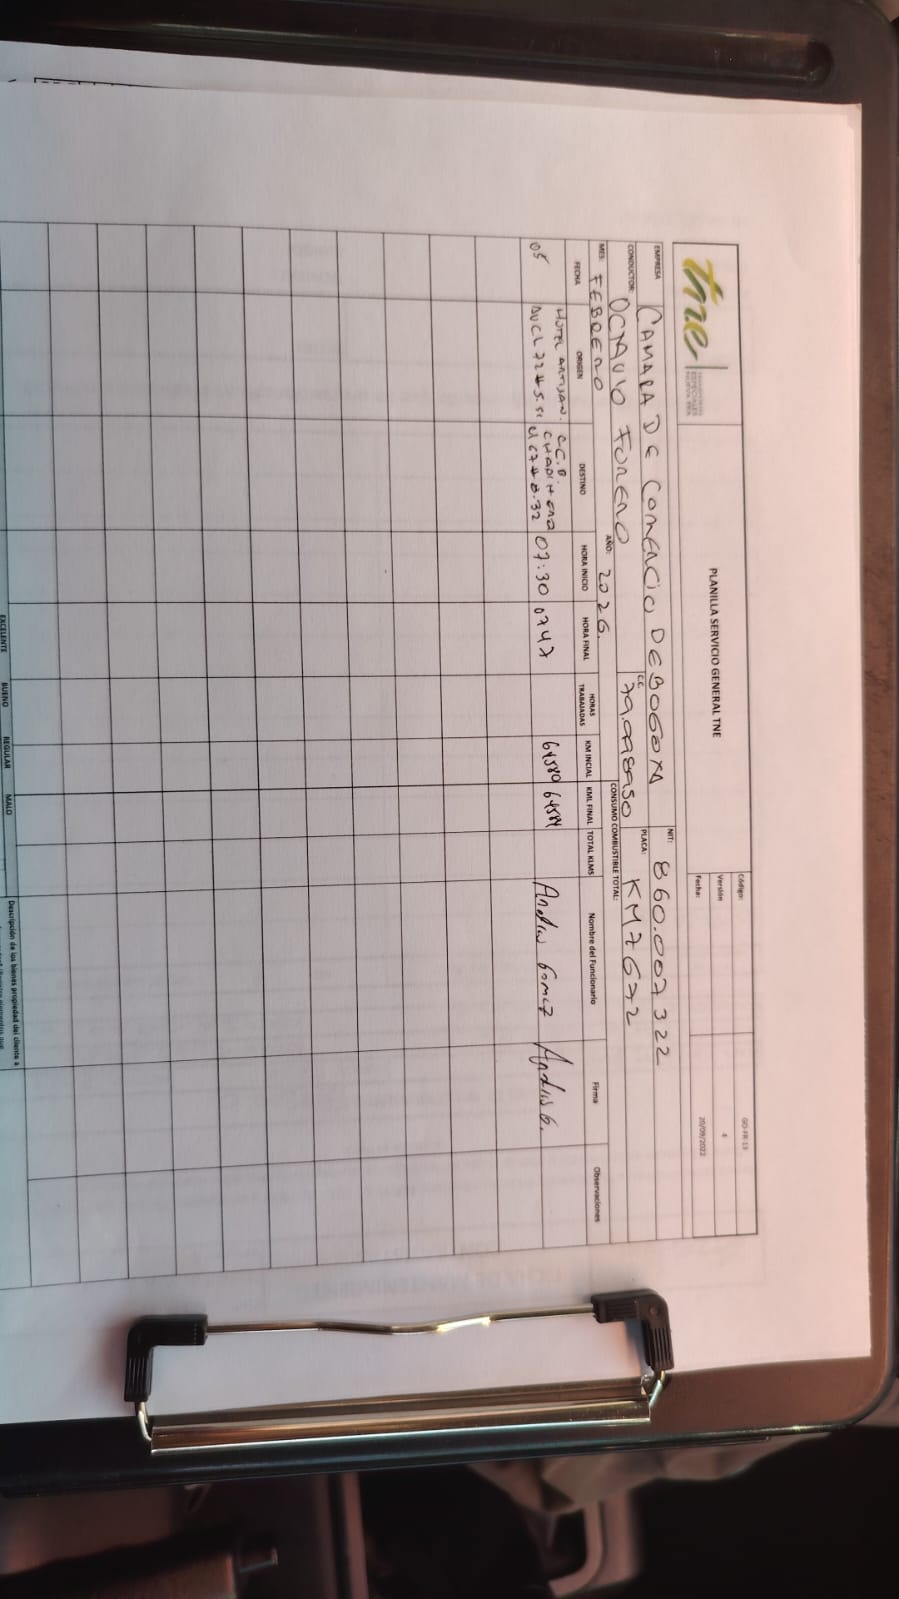 tne
ESPECIALES
PLANILLA SERVICIO GENERAL TNE
Código: GO-FR-13
Versión 4
Fecha: 20/09/2022
EMPRESA CAMARA DE COMERCIO DE BOGOTA NIT: 860.007322
CONDUCTOR: OCTAVIO FORERO CC PLACA:
MES: FEBRERO AÑO: 2026. CONSUMO COMBUSTIBLE TOTAL:
FECHA ORIGEN DESTINO HORA INICIO HORA FINAL HORAS TRABAJADAS KM INCIAL KML FINAL TOTAL KLMS Nombre del Funcionario Firma Observaciones
05 HOTEL ARTISAN. C.C.B.
07:30 0747 64580 Andres Gomez Andres G.
EXCELENTE BUENO REGULAR MALO Descripción de los bienes propiedad del cliente a